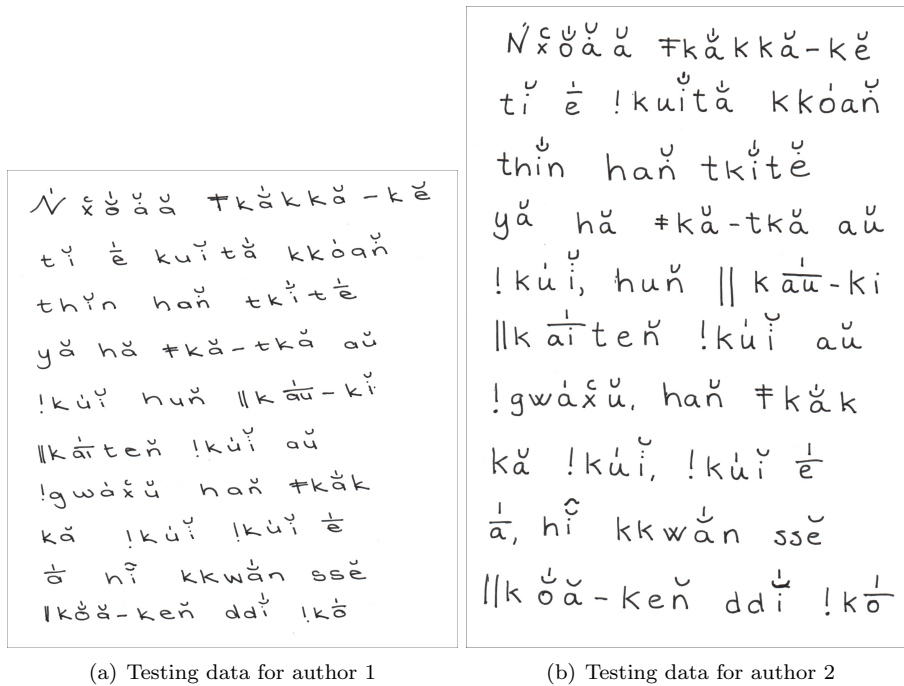 Ń x̆͑ ŏ̍ ằ ă ǂkă̍kkă-kĕ
tĭ ē̍ kuĭtă̍ kkȯ́ań̆
thĭ̍n hań̆ tkĭ̍tē̍
yă hă ǂkă-tkă aŭ
!kúĭ huń̆ ǁka̅u̅̍-kĭ
ǁka̅i̅̍teń̆ !kúĭ aŭ
!gwáx̆͑ŭ hań̆ ǂkă̍k
kă !kúĭ !kúĭ ē̍
ā̍ hı̑̆ kkwă̍n ssĕ
ǁkŏ̍ă-keń̆ ddĭ̍ !kō̍
(a) Testing data for author 1
Ń x̆͑ ŏ̍ ằ ă ǂkă̍kkă-kĕ
tĭ ē̍ !kuĭ̍tă̍ kkóań̆
thĭ̍n hań̆ tkĭ̍tĕ
yă hă ǂkă-tkă aŭ
!kúĭ, huń̆ ǁka̅u̅̍-ki
ǁka̅i̅̍teń̆ !kúĭ aŭ
!gwáx̆͑ŭ, hań̆ ǂkă̍k
kă !kúĭ, !kúĭ ē̍
ā̍, hı̑̆ kkwă̍n ssĕ
ǁkŏ̍ă-keń̆ ddĭ̍ !kō̍
(b) Testing data for author 2